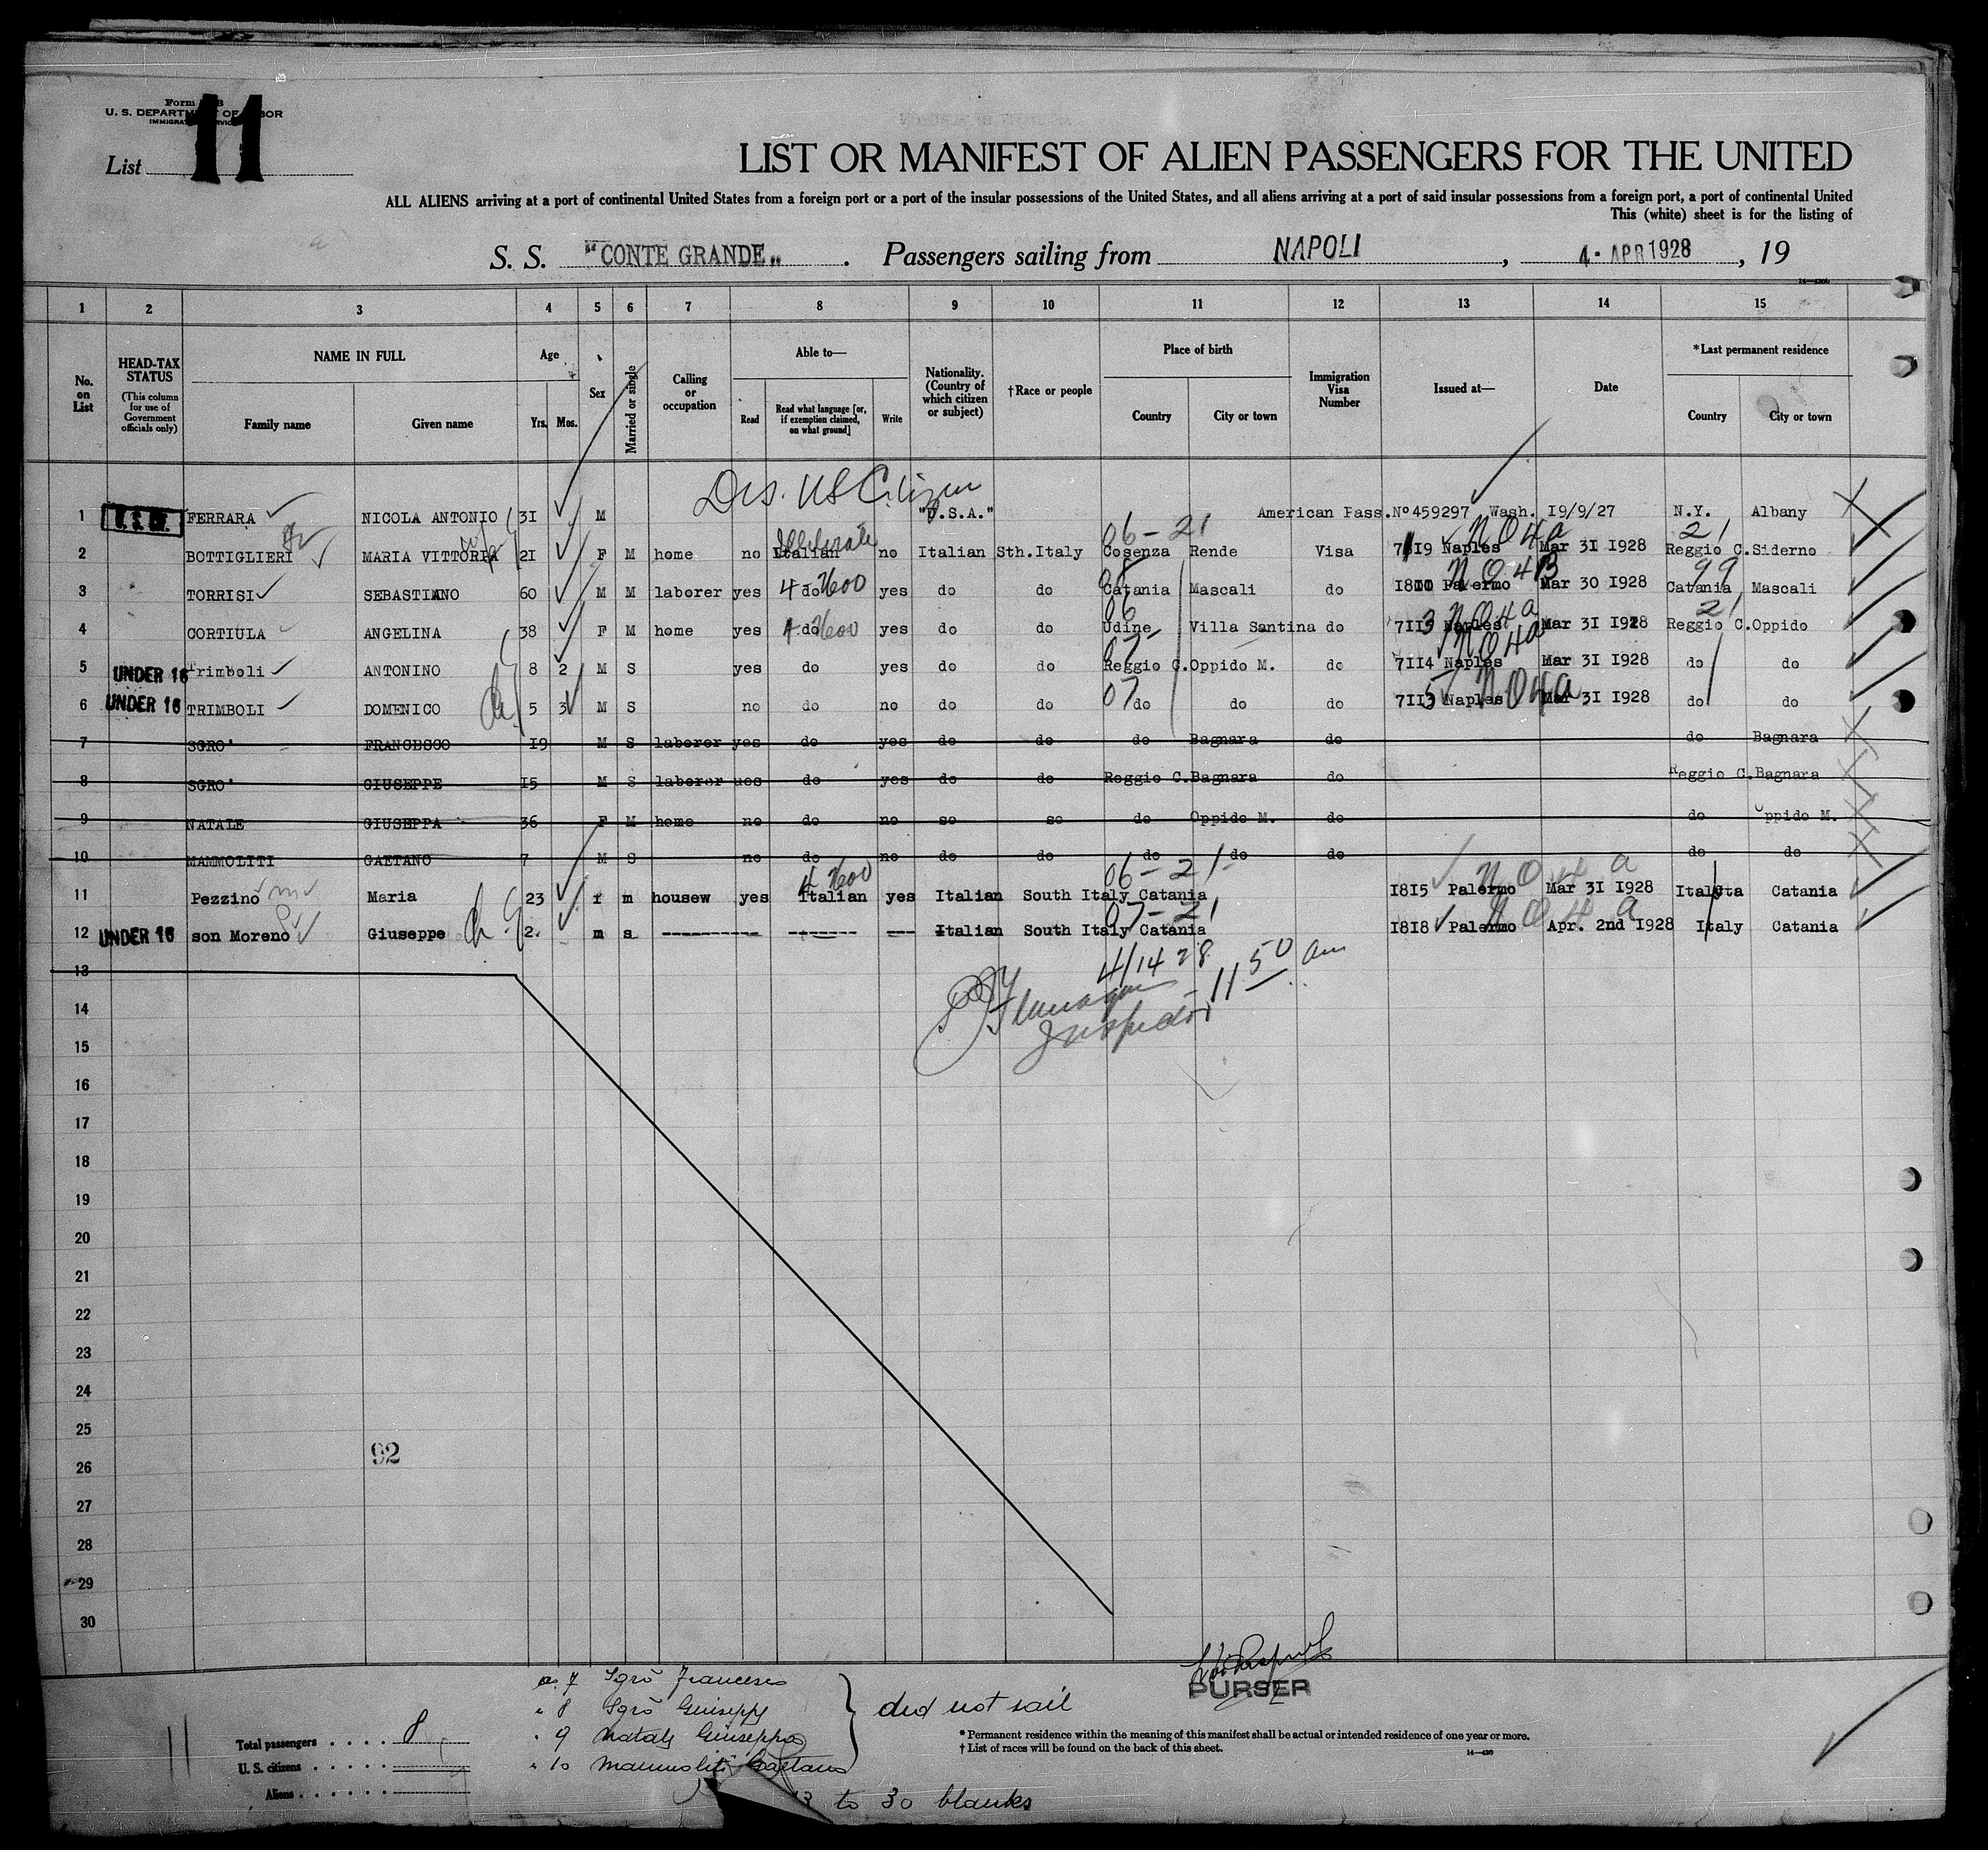 U. S. DEPARTMENT OF LABOR
List 11
LIST OR MANIFEST OF ALIEN PASSENGERS FOR THE UNITED
ALL ALIENS arriving at a port of continental United States from a foreign port or a port of the insular possessions of the United States, and all aliens arriving at a port of said insular possessions from a foreign port, a port of continental United
This (white) sheet is for the listing of
S. S. "CONTE GRANDE". Passengers sailing from NAPOLI, 4 · APR 1928, 19
14—430b
1 2 3 4 5 6 7 8 9 10 11 12 13 14 15
No. on List
HEAD-TAX STATUS (This column for use of Government officials only)
NAME IN FULL Family name Given name
Age Yrs. Mos.
Sex
Married or single
Calling or occupation
Able to— Read Read what language [or, if exemption claimed, on what ground] Write
Nationality. (Country of which citizen or subject)
†Race or people
Place of birth Country City or town
Immigration Visa Number
Issued at—
Date
*Last permanent residence Country City or town
Dis. US Citizen
1 FERRARA NICOLA ANTONIO 31 M "U.S.A." American Pass.Nº459297 Wash. I9/9/27 N.Y. Albany
Illiterate 06-21 N04a 21
2 BOTTIGLIERI MARIA VITTORIA 2I F M home no Italian no Italian Sth.Italy Cosenza Rende Visa Naples Mar 3I I928 Reggio C.Siderno
N04B 99
3 TORRISI SEBASTIANO 60 M M laborer yes do yes do do Catania Mascali do Palermo Mar 30 I928 Catania Mascali
06 N04a 21
4 CORTIULA ANGELINA 38 F M home yes do yes do do Udine Villa Santina do 7II3 Naples Mar 3I I928 Reggio C.Oppido
07 N04a
5 UNDER 16 Trimboli ANTONINO 8 2 M S yes do yes do do Reggio C.Oppido M. do 7II4 Naples Mar 3I I928 do do
07 N04a
6 UNDER 16 TRIMBOLI DOMENICO 5 3 M S no do no do do do do do Naples Mar 3I I928 do do
7 SGRO' FRANCESCO I9 M S laborer yes do yes do do do Bagnara do do Bagnara
8 SGRO' GIUSEPPE I5 M S laborer ues do yes do do Reggio C.Bagnara do Reggio C.Bagnara
9 NATALE GIUSEPPA 36 F M home no do no so so do Oppido M. do do Oppido M.
10 MAMMOLITI GAETANO 7 M S no do no do do do do do do do
06-21 N04a
11 Pezzino Maria 23 f m housew yes Italian yes Italian South Italy Catania I8I5 Palermo Mar 3I I928 Catania
07-21 N04a
12 UNDER 16 son Moreno Giuseppe 2 m s Italian South Italy Catania I8I8 Palermo Apr. 2nd I928 Italy Catania
13
4/14 28
11 50 am
Inspector
14
15
16
17
18
19
20
21
22
23
24
25
92
26
27
28
29
30
PURSER
7 Sgrò Francesco
" 8 Sgrò Giuseppe
" 9 Natale Giuseppa
" 10 Mammoliti Gaetano
did not sail
13 to 30 blanks
Total passengers . . . . 8
U. S. citizens . . . . .
Aliens . . . . . .
* Permanent residence within the meaning of this manifest shall be actual or intended residence of one year or more.
† List of races will be found on the back of this sheet.
14—430